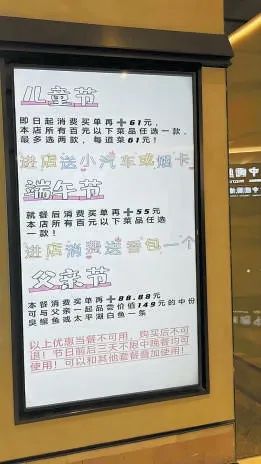 儿童节
即日起消费买单再+61元，
本店所有百元以下菜品任选一款，
最多选两款，每道菜61元！
进店送小汽车或烟卡
端午节
就餐后消费买单再+55元
本店所有百元以下菜品任选
一款！
进店消费送香包一个
父亲节
本餐消费买单再+88.88元
可与父亲一起品尝价值149元的中份
臭鳜鱼或太平湖白鱼一条
以上优惠当餐不可用，购买后不可
退！节日前后三天不限中晚餐均可
使用！可以和其他套餐叠加使用！